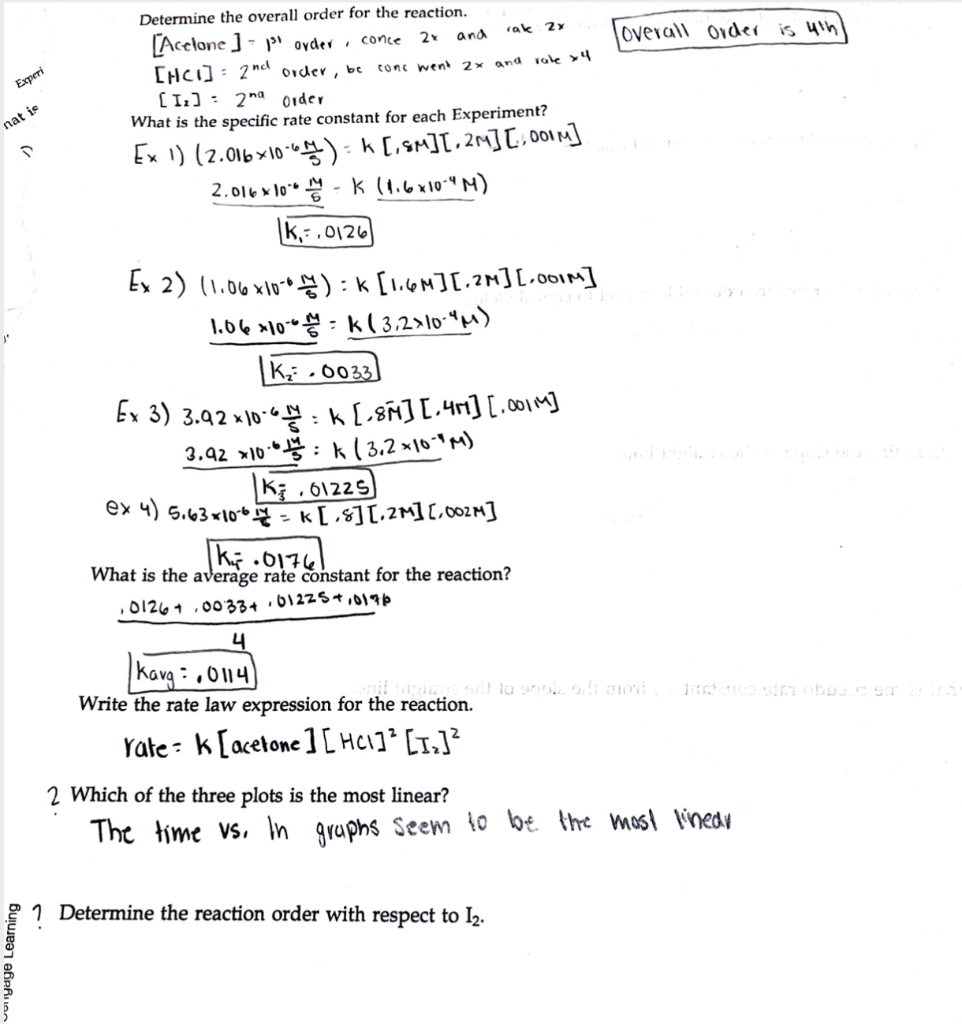 Determine the overall order for the reaction.
[Acetone] = 1st order, conce 2x and rate 2x
Overall order is 4th
[HCl] = 2nd order, bc conc went 2x and rate x4
[I₂] = 2nd order
Experi
nat is
What is the specific rate constant for each Experiment?
Ex 1) (2.016x10⁻⁶ M/s) = k [.8M][.2M][.001M]
2.016x10⁻⁶ M/s = k (1.6x10⁻⁴ M)
k₁ = .0126
Ex 2) (1.06x10⁻⁶ M/s) = k [1.6M][.2M][.001M]
1.06x10⁻⁶ M/s = k (3.2x10⁻⁴M)
k₂ = .0033
Ex 3) 3.92x10⁻⁶ M/s = k [.8M][.4M][.001M]
3.92x10⁻⁶ M/s = k (3.2x10⁻⁴ M)
k₃ = .01225
ex 4) 5.63x10⁻⁶ M/s = k [.8][.2M][.002M]
k₄ = .0176
What is the average rate constant for the reaction?
.0126 + .0033 + .01225 + .0176
4
kavg = .0114
Write the rate law expression for the reaction.
rate = k[acetone][HCl]²[I₂]²
? Which of the three plots is the most linear?
The time vs. ln graphs seem to be the most linear
? Determine the reaction order with respect to I₂.
Learning